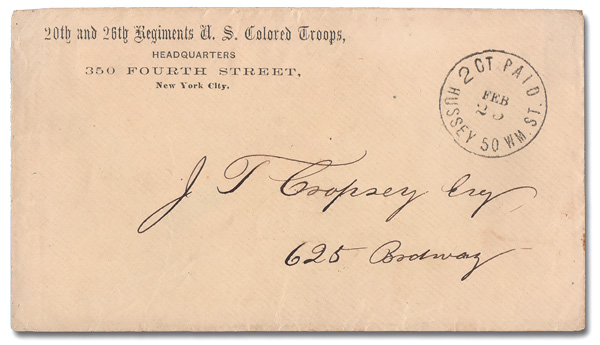 20th and 26th Regiments U. S. Colored Troops,
HEADQUARTERS
350 FOURTH STREET,
New York City.
2 CT PAID
FEB
25
HUSSEY 50 WM. ST.
J T Cropsey Esq
625 Brodway